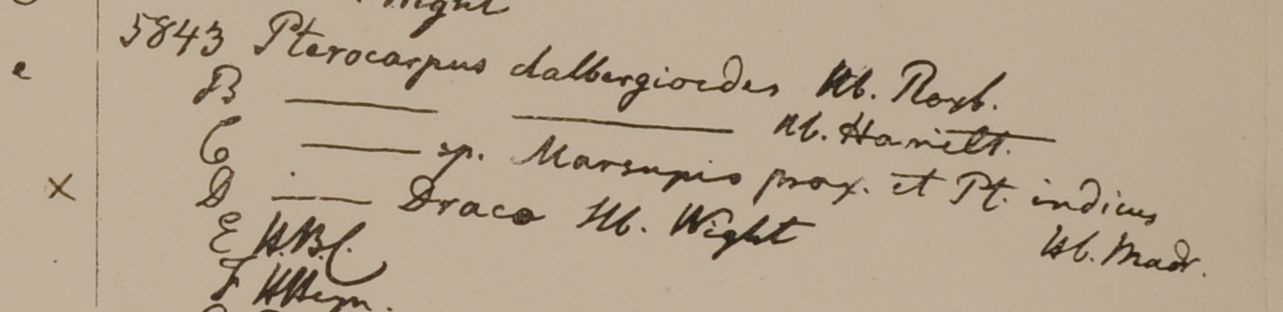 Wight
5843 Pterocarpus dalbergioides Hb. Roxb.
e
B ——— ——— Hb. Hamilt.
C ——— sp. Marsupio prox. et Pt. indicus
Hb. Madr.
x D ——— Draco Hb. Wight
E H.B.C.
F HHeyn.